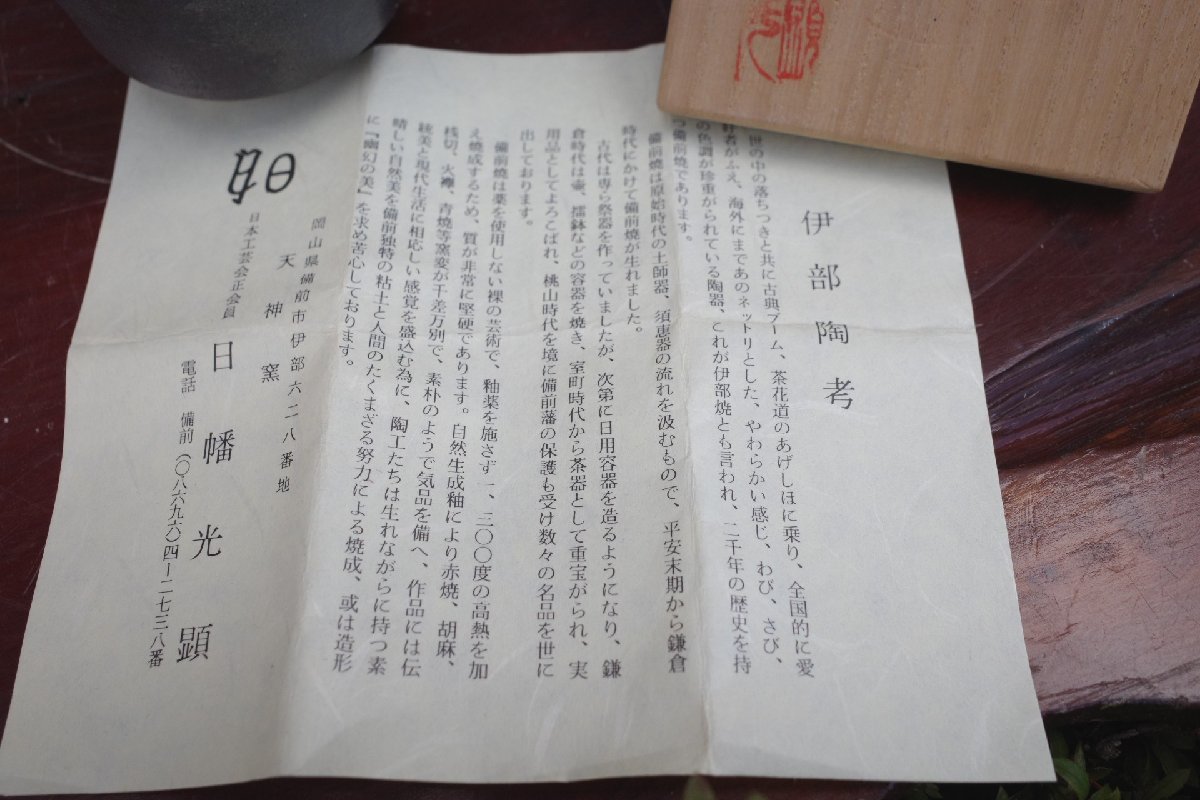 伊部陶考
世の中の落ちつきと共に古典ブーム、茶花道のあげしほに乗り、全国的に愛
好者がふえ、海外にまであのネットリとした、やわらかい感じ、わび、さび、
の色調が珍重がられている陶器、これが伊部焼とも言われ、二千年の歴史を持
つ備前焼であります。
備前焼は原始時代の土師器、須恵器の流れを汲むもので、平安末期から鎌倉
時代にかけて備前焼が生れました。
古代は専ら祭器を作っていましたが、次第に日用容器を造るようになり、鎌
倉時代は壷、擂鉢などの容器を焼き、室町時代から茶器として重宝がられ、実
用品としてよろこばれ、桃山時代を境に備前藩の保護も受け数々の名品を世に
出しております。
備前焼は薬を使用しない裸の芸術で、釉薬を施さず一、三〇〇度の高熱を加
え焼成するため、質が非常に堅硬であります。自然生成釉により赤焼、胡麻、
桟切、火襷、青焼等窯変が千差万別で、素朴のようで気品を備へ、作品には伝
統美と現代生活に相応しい感覚を盛込む為に、陶工たちは生れながらに持つ素
晴しい自然美を備前独特の粘土と人間のたくまざる努力による焼成、或は造形
に『幽幻の美』を求め苦心しております。
岡山県備前市伊部六二八番地
天神窯
日本工芸会正会員
日幡光顕
電話 備前(〇八六九六)四ー二七三八番